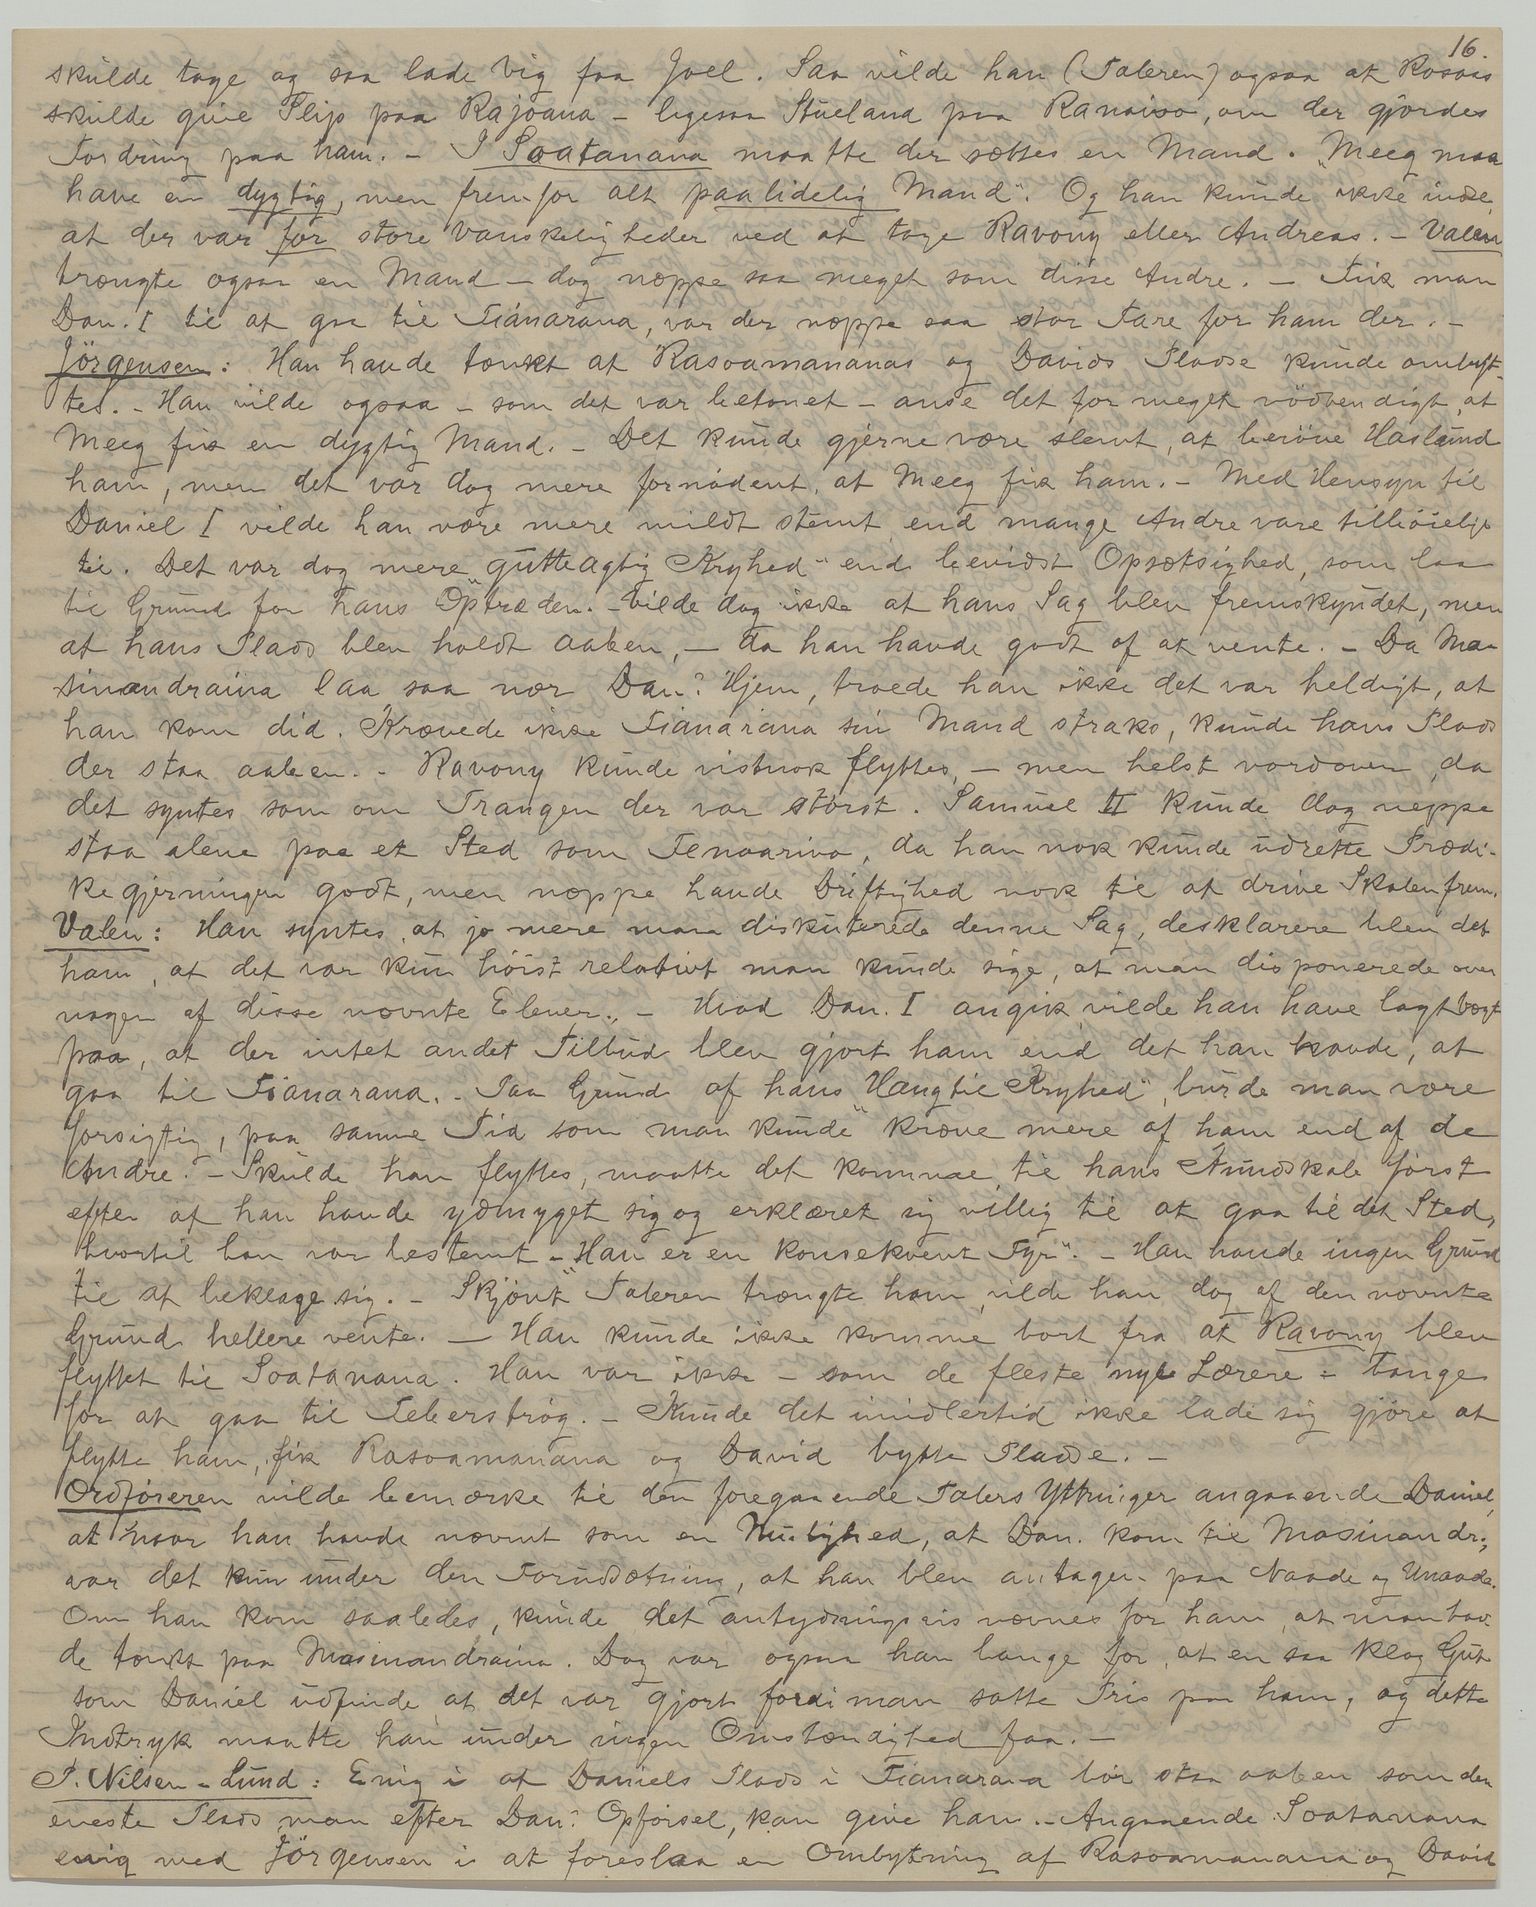 16.
skulde tage og saa lade Vig faa Joel. Saa vilde han (Taleren) ogsaa at Rosaas
skulde give Slip paa Rajoana - ligesaa Stueland paa Ranaivo, om der gjordes
Fordring paa ham. - I Soatanana maatte der sættes en Mand. "Meeg maa
have en dygtig, men fremfor alt paalidelig Mand". Og han kunde ikke indse,
at der var for store Vanskeligheder ved at tage Ravony eller Andreas. - Valen
trængte ogsaa en Mand - dog næppe saa meget som disse Andre. - Fik man
Dan. I til at gaa til Fianarana, var der næppe saa stor Fare for ham der. -
Jörgensen: Han havde tænkt at Rasoamananas og Davids Pladse kunde ombyt-
tes. - Han vilde ogsaa - som det var betonet - anse det for meget nödvendigt, at
Meeg fik en dygtig Mand. - Det kunde gjerne være slemt, at beröve Haslund
ham, men det var dog mere fornödent, at Meeg fik ham. - Med Hensyn til
Daniel I vilde han være mere mildt stemt end mange Andre vare tilböielige
til. Det var dog mere "gutteagtig Kryhed" end bevidst Opsætsighed, som laa
til Grund for hans Optræden. - Vilde dog ikke at hans Sag blev fremskyndet, men
at hans Plads blev holdt aaben, - da han havde godt af at vente. - Da Ma-
sinandraina laa saa nær Dan.s Hjem, troede han ikke det var heldigt, at
han kom did. Krævede ikke Fianarana sin Mand straks, kunde hans Plads
der staa aaben. - Ravony kunde vistnok flyttes, - men helst vordoven, da
det syntes som om Trangen der var störst. Samuel II kunde dog neppe
staa alene paa et Sted som Fenoarivo, da han nok kunde udrette Prædi-
kegjerningen godt, men næppe havde Driftighed nok til at drive Skolen frem.
Valen: Han syntes, at jo mere man diskuterede denne Sag, desklarere blev det
ham, at det var kun höist relativt man kunde sige, at man disponerede over
nogen af disse nævnte Elever. - Hvad Dan. I angik, vilde han have lagt Vægt
paa, at der intet andet Tilbud blev gjort ham end det han havde, at
gaa til Fianarana. - Paa Grund af hans "Hang til Kryhed", burde man være
forsigtig, paa samme Tid som man kunde kræve mere af ham end af de
Andre. - Skulde han flyttes, maatte det komme til hans Kundskab först
efter at han havde ydmyget sig og erklæret sig villig til at gaa til det Sted,
hvortil han var bestemt - "Han er en konsekvent Fyr". - Han havde ingen Grund
til at beklage sig. - Skjönt Taleren trængte ham, vilde han dog af den nævnte
Grund hellere vente. - Han kunde ikke komme bort fra at Ravony blev
flyttet til Soatanana. Han var ikke - som de fleste nye Lærere - bange
for at gaa til Feberströg. - Kunde det imidlertid ikke lade sig gjöre at
flytte ham, fik Rasoamanana og David bytte Pladse. -
Ordföreren vilde bemærke til den foregaaende Talers Yttringer angaaende Daniel,
at naar han havde nævnt som en Mulighed, at Dan. kom til Masinandr.,
var det kun under den Forudsætning, at han blev antagen paa Naade og Unaade.
Om han kom saaledes, kunde det antydningsvis nævnes for ham, at man hav-
de tænkt paa Masinandraina. Dog var ogsaa han bange for, at en saa klog Gut
som Daniel udfinde, at det var gjort fordi man satte Pris paa ham, og dette
Indtryk maatte han under ingen Omstændighed faa. -
P. Nilsen-Lund: Enig i at Daniels Plads i Fianarana bör staa aaben som den
eneste Plads man efter Dan.s Opförsel, kan give ham. - Angaaende Soatanana
enig med Jörgensen i at foreslaa en Ombytning af Rasoamanana og David